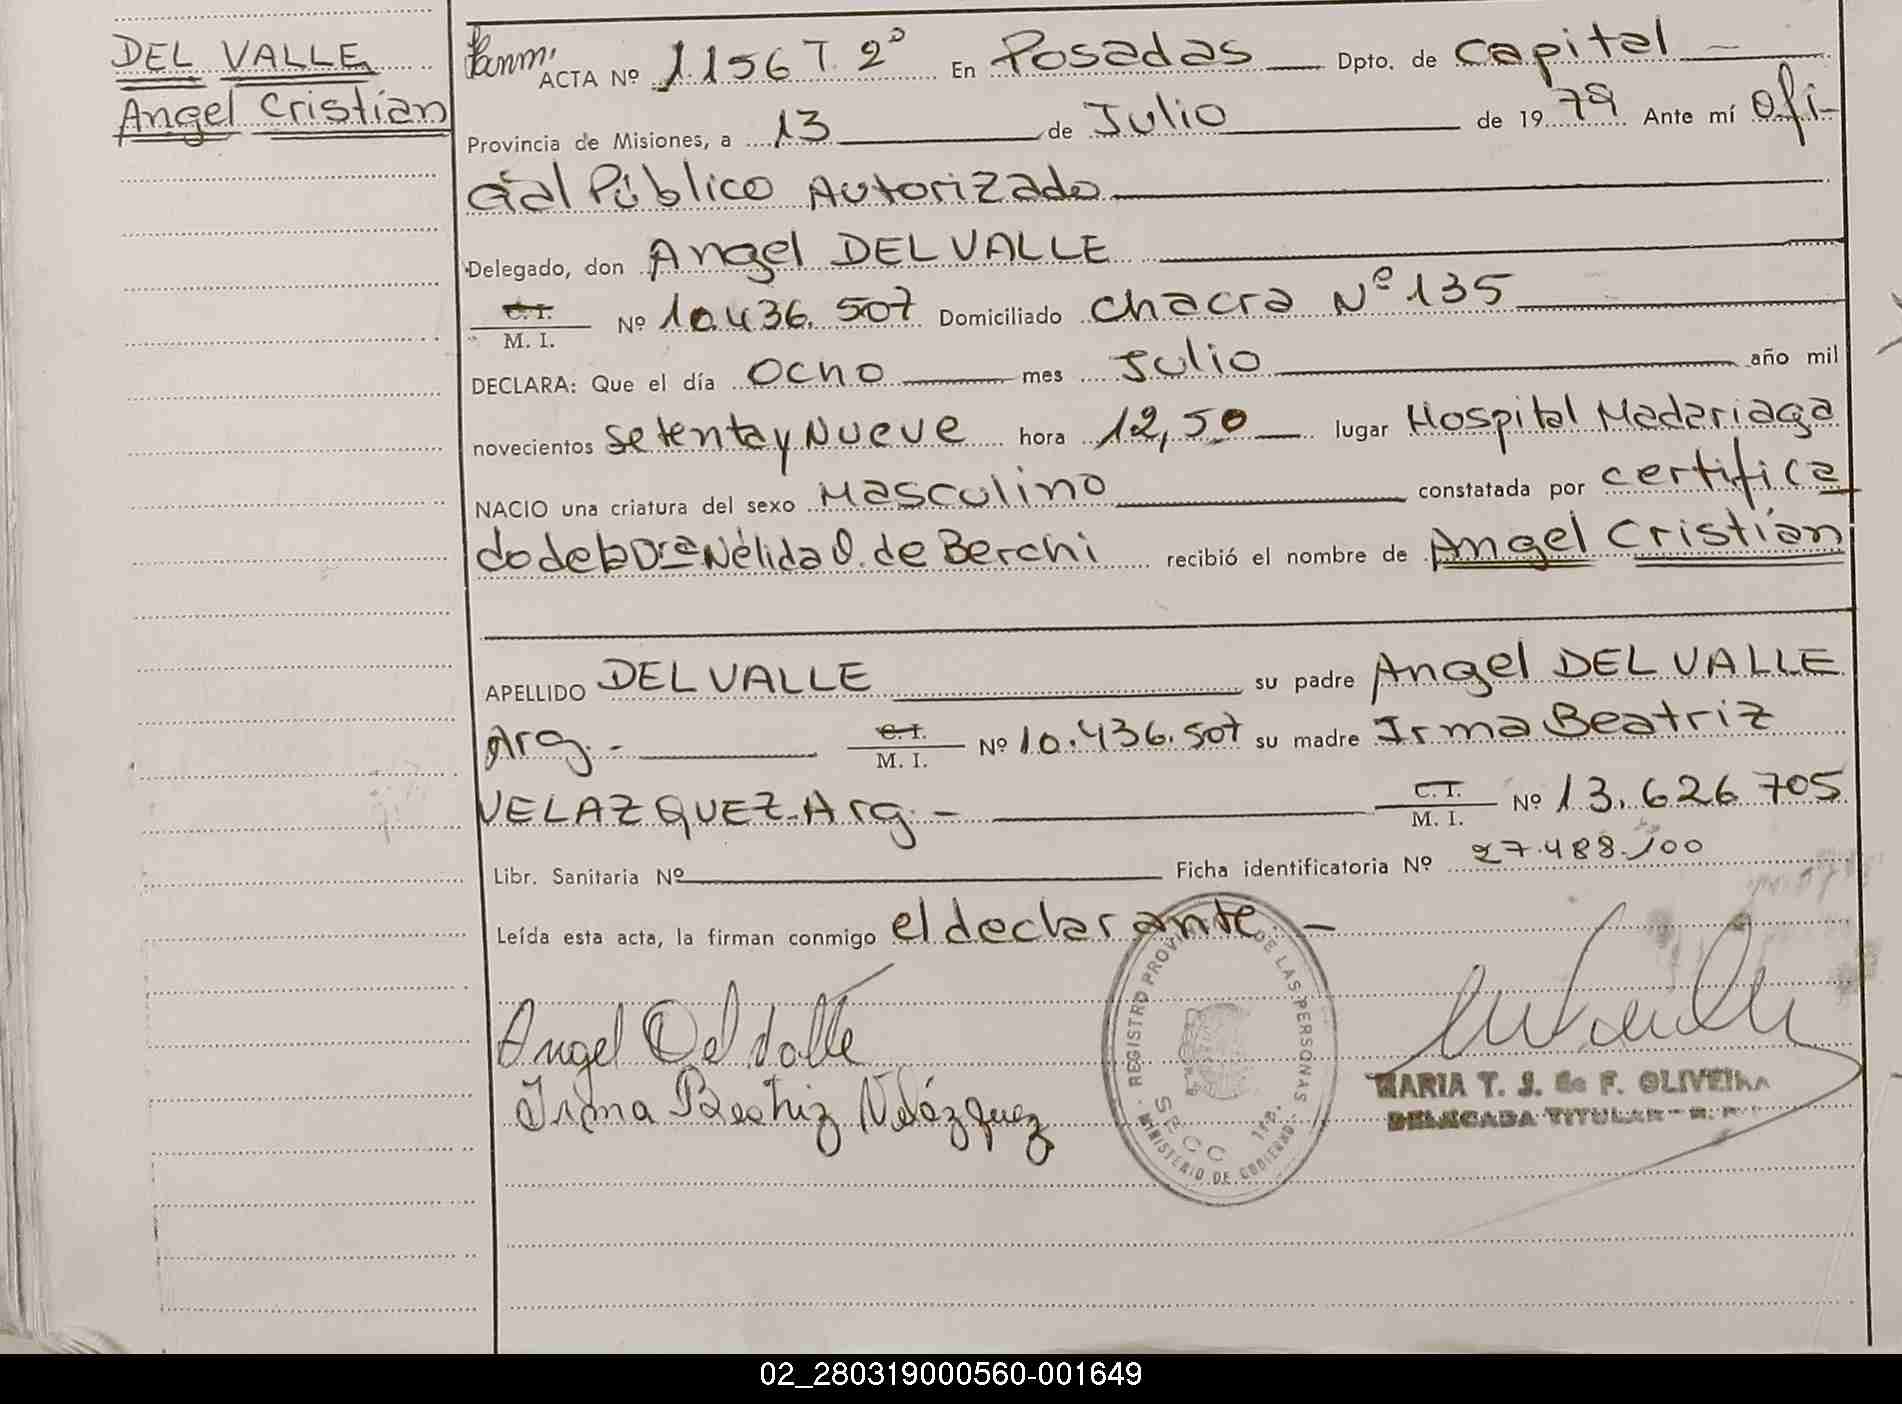 DEL VALLE
Angel Cristían
ACTA Nº 1156 T. 2º En Posadas Dpto. de Capital
Provincia de Misiones, a 13 de Julio de 1979 Ante mí Ofi-
cial Público Autorizado
Delegado, don Angel DEL VALLE
C. I.
M. I. Nº 10.436.507 Domiciliado Chacra Nº 135
DECLARA: Que el día Ocho mes Julio año mil
novecientos setenta y Nueve hora 12,50 lugar Hospital Madariaga
NACIO una criatura del sexo Masculino constatada por certifica
do de la Dra Nélida O. de Berchi recibió el nombre de Angel Cristían
APELLIDO DEL VALLE su padre Angel DEL VALLE
Arg.- C. I.
M. I. Nº 10.436.507 su madre Irma Beatriz
VELAZQUEZ-Arg.- C. I.
M. I. Nº 13.626 705
Libr. Sanitaria Nº Ficha identificatoria Nº 27.488.100
Leída esta acta, la firman conmigo el declarante.-
Angel Del Valle
Irma Beatriz Velázquez
REGISTRO PROVINCIAL DE LAS PERSONAS
SECC 1ra.
MINISTERIO DE GOBIERNO
MARIA T. S. de F. OLIVEIRA
DELEGADA TITULAR
02_280319000560-001649